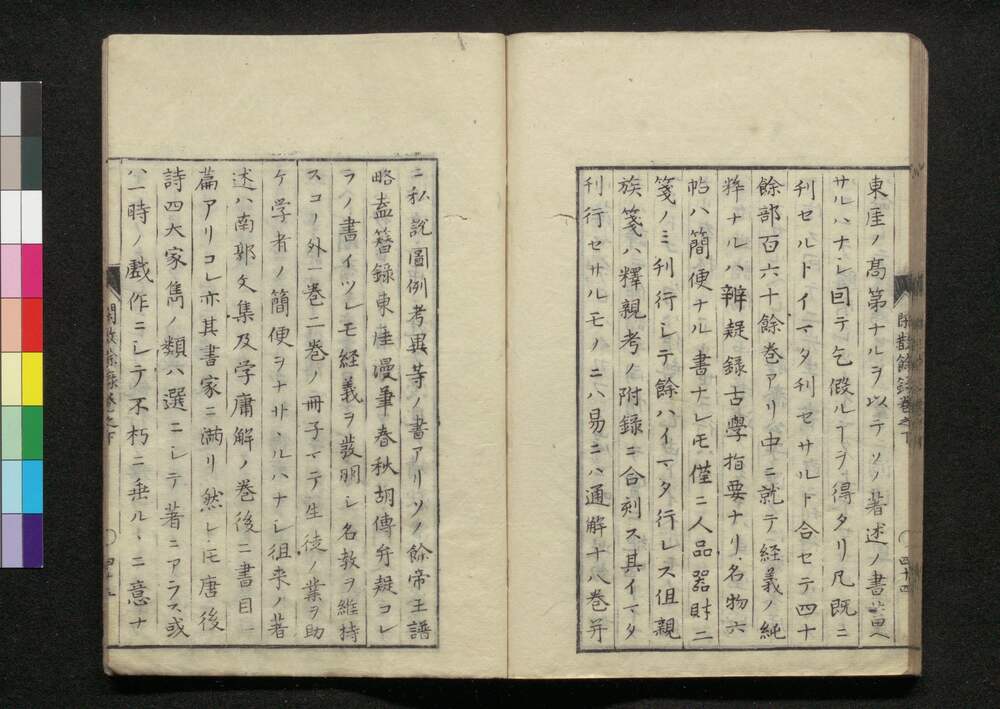 東厓ノ髙第ナルヲ以テソノ著述ノ書蓄ヘ
サルハナシ因テ乞假ルヿヲ得タリ凡既ニ
利セルトイマタ利セサルト合セテ四十
餘部百六十餘巻アリ中ニ就テ経義ノ純
粋ナルハ辨疑録古學指要ナリ名物六
帖ハ簡便ナル書ナレ𪜈僅ニ人品噐財二
箋ノミ刊行シテ餘ハイマタ行レス但親
族箋ハ釋親考ノ附録ニ合刻ス其イマタ
刊行セサルモノニハ易ニハ通解十八巻并
ニ私說圖例考異等ノ書アリソノ餘帝王譜
略盍簪録東厓漫筆春秋胡傳弁疑コレ
ラノ書イツレモ経義ヲ發明シ名教ヲ維持
スコノ外一巻二巻ノ冊子マテ生徒ノ業ヲ助
ケ学者ノ簡便ヲナサヽルハナシ徂来ノ著
述ハ南郭文集及学庸解ノ巻後ニ書目一
篇アリコレ亦其書家ニ満リ然レ𪜈唐後
詩四大家雋ノ類ハ選ニシテ著ニアラス或
ハ一時ノ戯作ニシテ不朽ニ垂ルヽニ意ナ